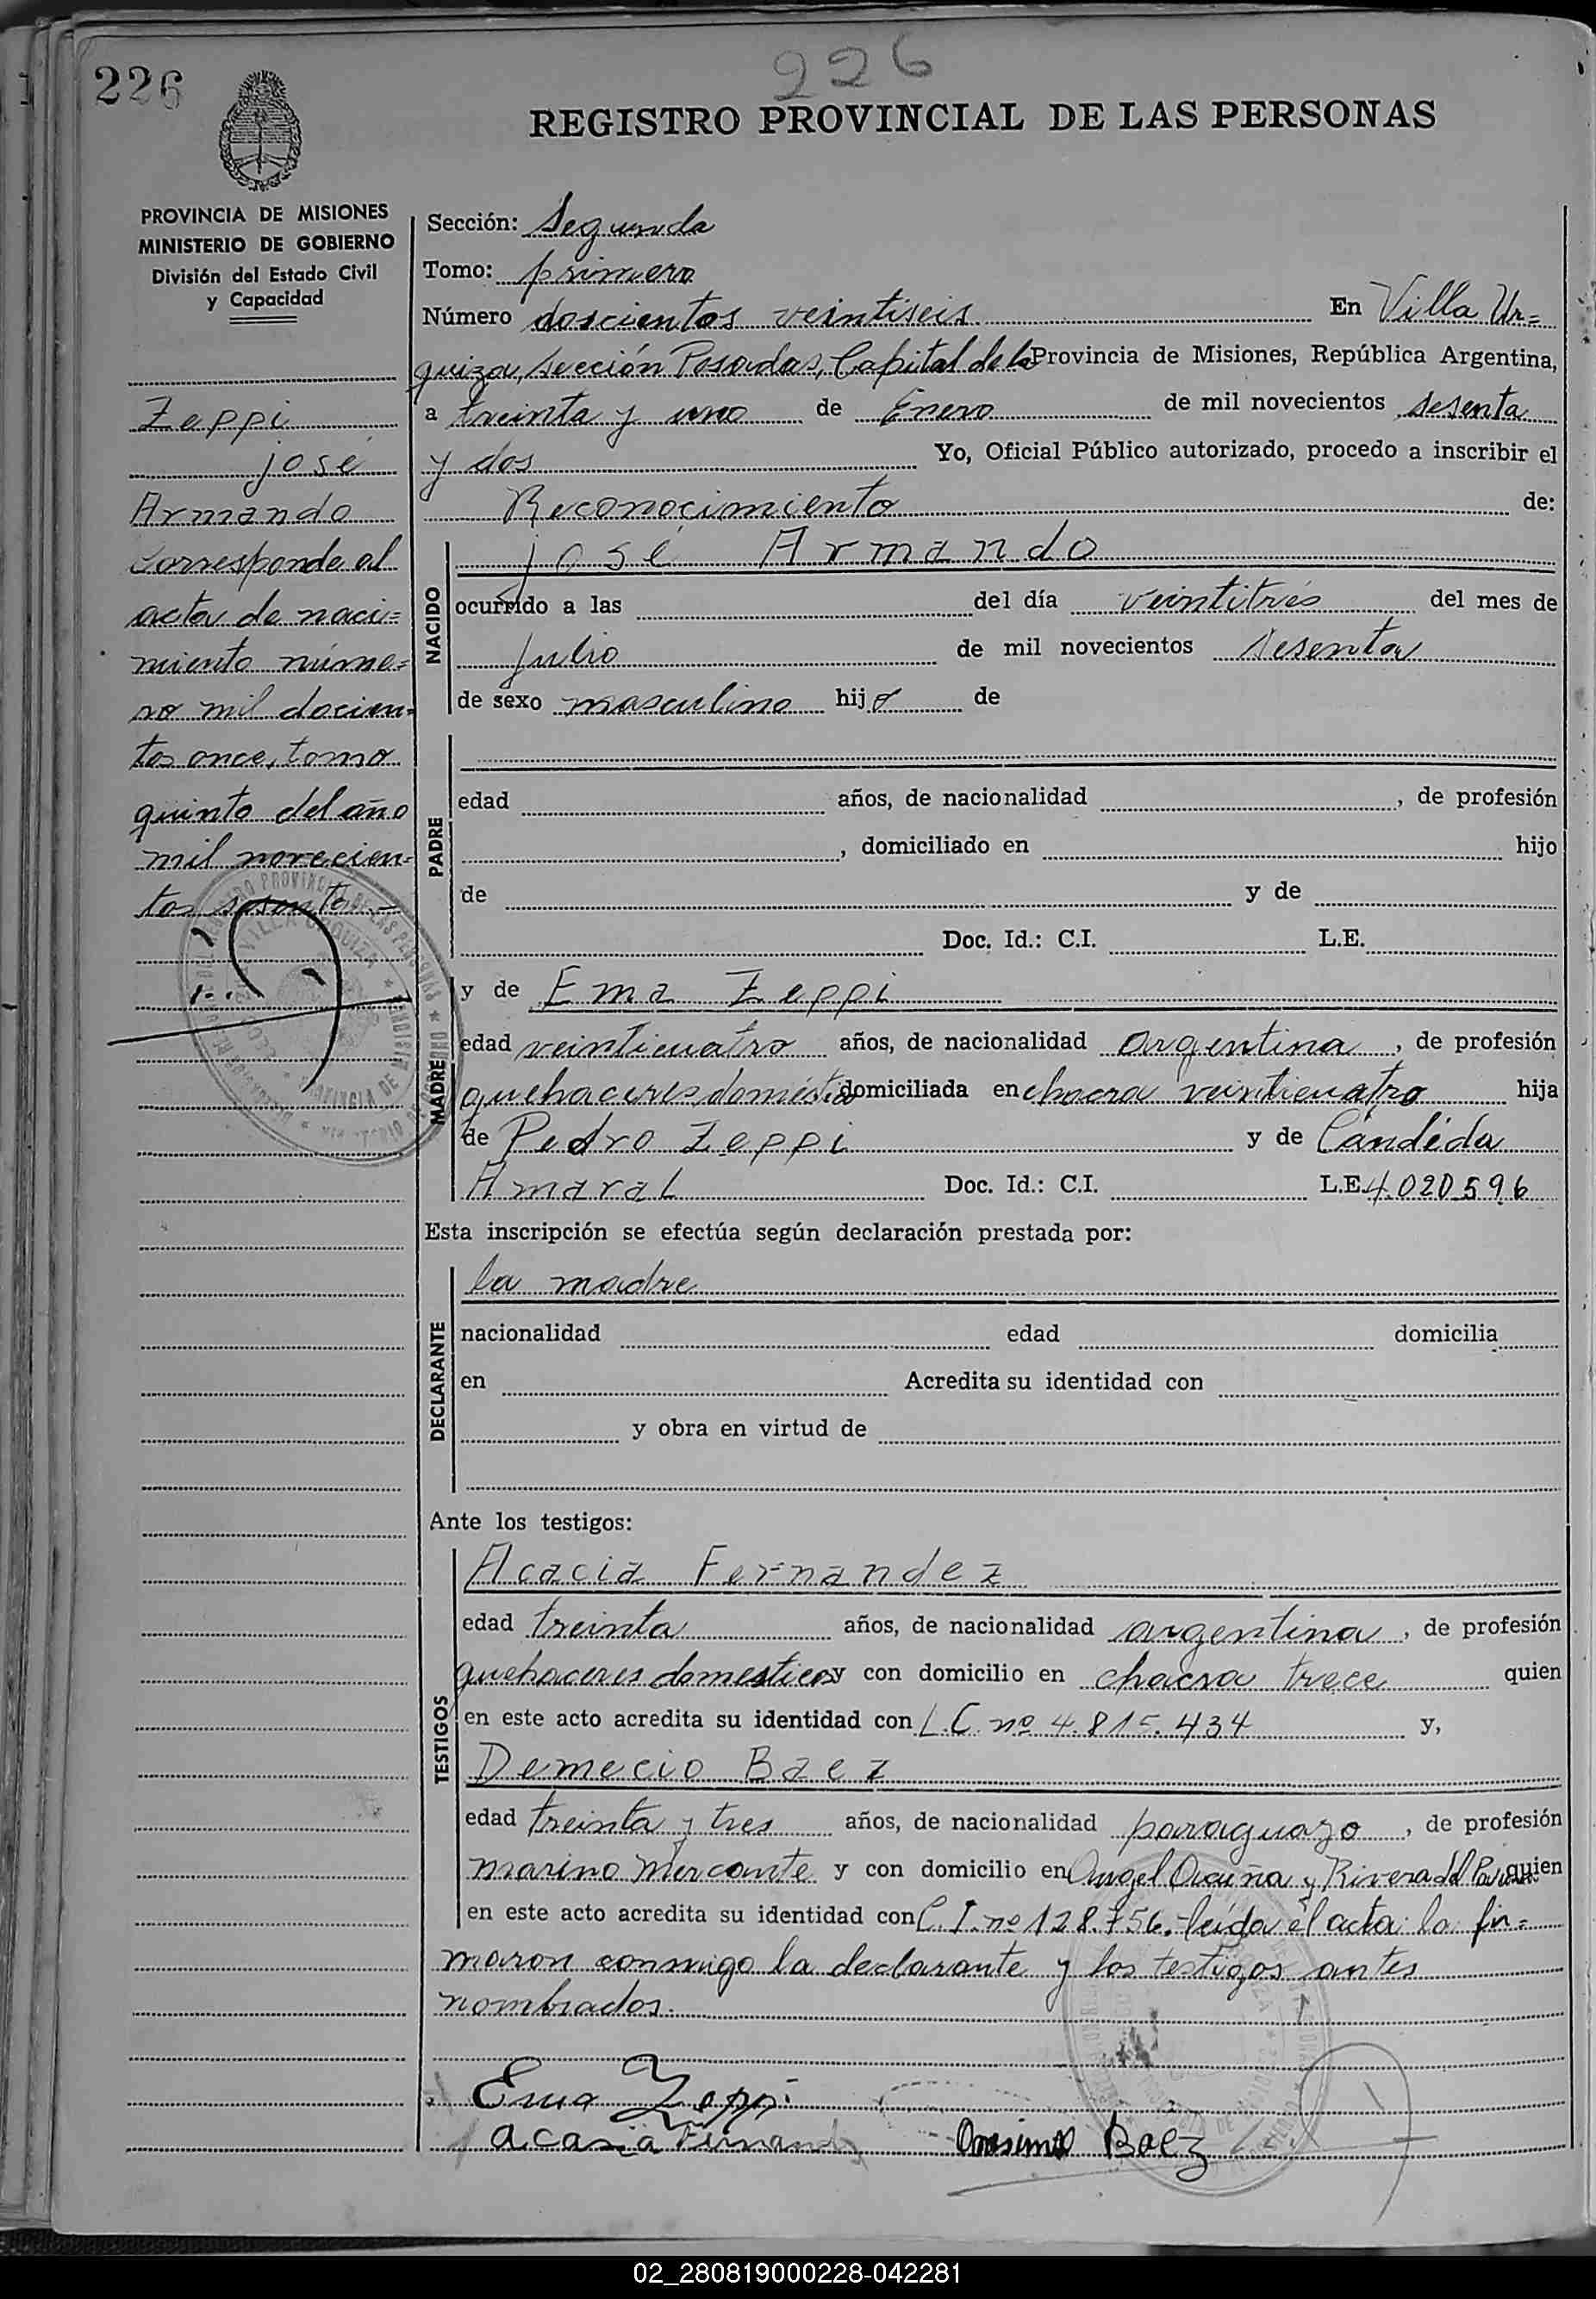 226
226
REGISTRO PROVINCIAL DE LAS PERSONAS
PROVINCIA DE MISIONES
MINISTERIO DE GOBIERNO
División del Estado Civil
y Capacidad
Zeppi
José
Armando
Corresponde al
acta de naci=
miento núme=
ro mil docien=
tos once, tomo
quinto del año
mil novecien-
tos sesenta.-
Sección: Segunda
Tomo: primero
Número doscientos veintiseis En Villa Ur=
quiza, sección Posadas, Capital de la Provincia de Misiones, República Argentina,
a treinta y uno de Enero de mil novecientos sesenta
y dos Yo, Oficial Público autorizado, procedo a inscribir el
Reconocimiento de:
NACIDO
José Armando
ocurrido a las del día veintitrés del mes de
Julio de mil novecientos sesenta
de sexo masculino hijo de
PADRE
edad años, de nacionalidad , de profesión
, domiciliado en hijo
de y de
Doc. Id.: C.I. L.E.
MADRE
y de Ema Zeppi
edad veinticuatro años, de nacionalidad argentina, de profesión
quehaceres domésticos domiciliada en chacra veinticuatro hija
de Pedro Zeppi y de Cándida
Amaral Doc. Id.: C.I. L.E. 4.020.596
Esta inscripción se efectúa según declaración prestada por:
DECLARANTE
la madre
nacionalidad edad domicilia
en Acredita su identidad con
y obra en virtud de
Ante los testigos:
TESTIGOS
Acacia Fernandez
edad treinta años, de nacionalidad argentina, de profesión
quehaceres domesticos y con domicilio en chacra trece quien
en este acto acredita su identidad con L.C. nº 4.815.434 y,
Demecio Baez
edad treinta y tres años, de nacionalidad paraguayo, de profesión
marino mercante y con domicilio en Angel Acuña y Rivera del quien
en este acto acredita su identidad con C.I. nº 128.756.- leída el acta la fir=
maron conmigo la declarante y los testigos antes
nombrados.
Ema Zeppi
acasia Fernandez Baez
02_280819000228-042281